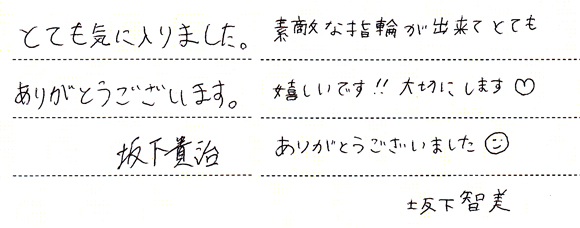 とても気に入りました。
ありがとうございます。
坂下貴治
素敵な指輪が出来てとても
嬉しいです!! 大切にします♡
ありがとうございました☺
坂下智美